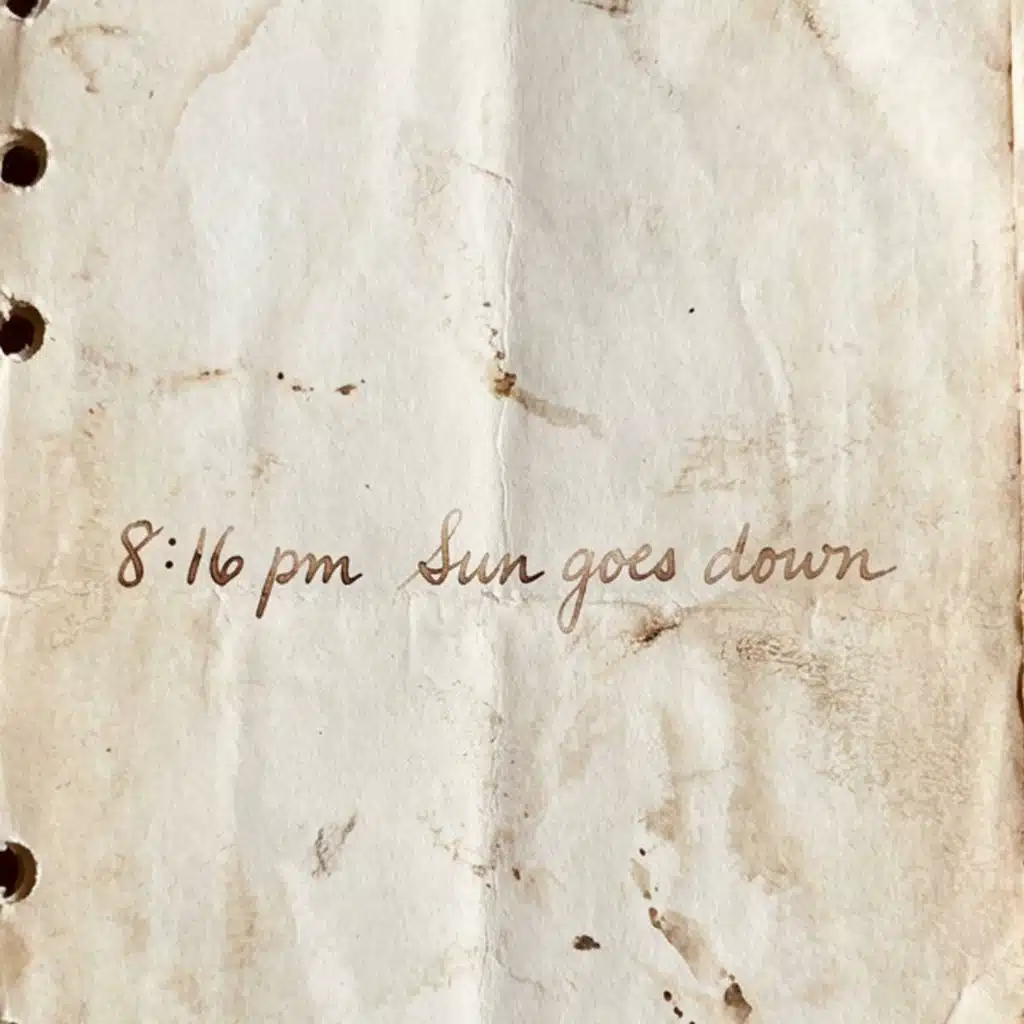 8:16 pm Sun goes down